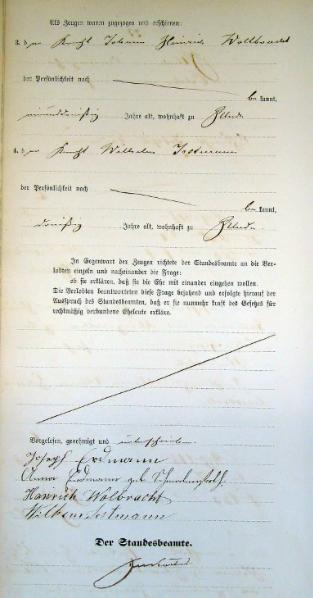 Als Zeugen waren zugezogen und erschienen:
3. der Knecht Johann Heinrich Wollbracht
der Persönlichkeit nach
be kannt,
Jahre alt, wohnhaft zu
4. der Knecht Wilhelm
der Persönlichkeit nach
be kannt,
dreißig Jahre alt, wohnhaft zu
In Gegenwart der Zeugen richtete der Standesbeamte an die Ver-
lobten einzeln und nacheinander die Frage:
ob sie erklären, daß sie die Ehe mit einander eingehen wollen.
Die Verlobten beantworteten diese Frage bejahend und erfolgte hierauf der
Ausspruch des Standesbeamten, daß er sie nunmehr kraft des Gesetzes für
rechtmäßig verbundene Eheleute erkläre.
Vorgelesen, genehmigt und unterschrieben
Joseph Erdmann
Erdmann geb
Heinrich Wolbracht
Wilhem Jostmann
Der Standesbeamte.